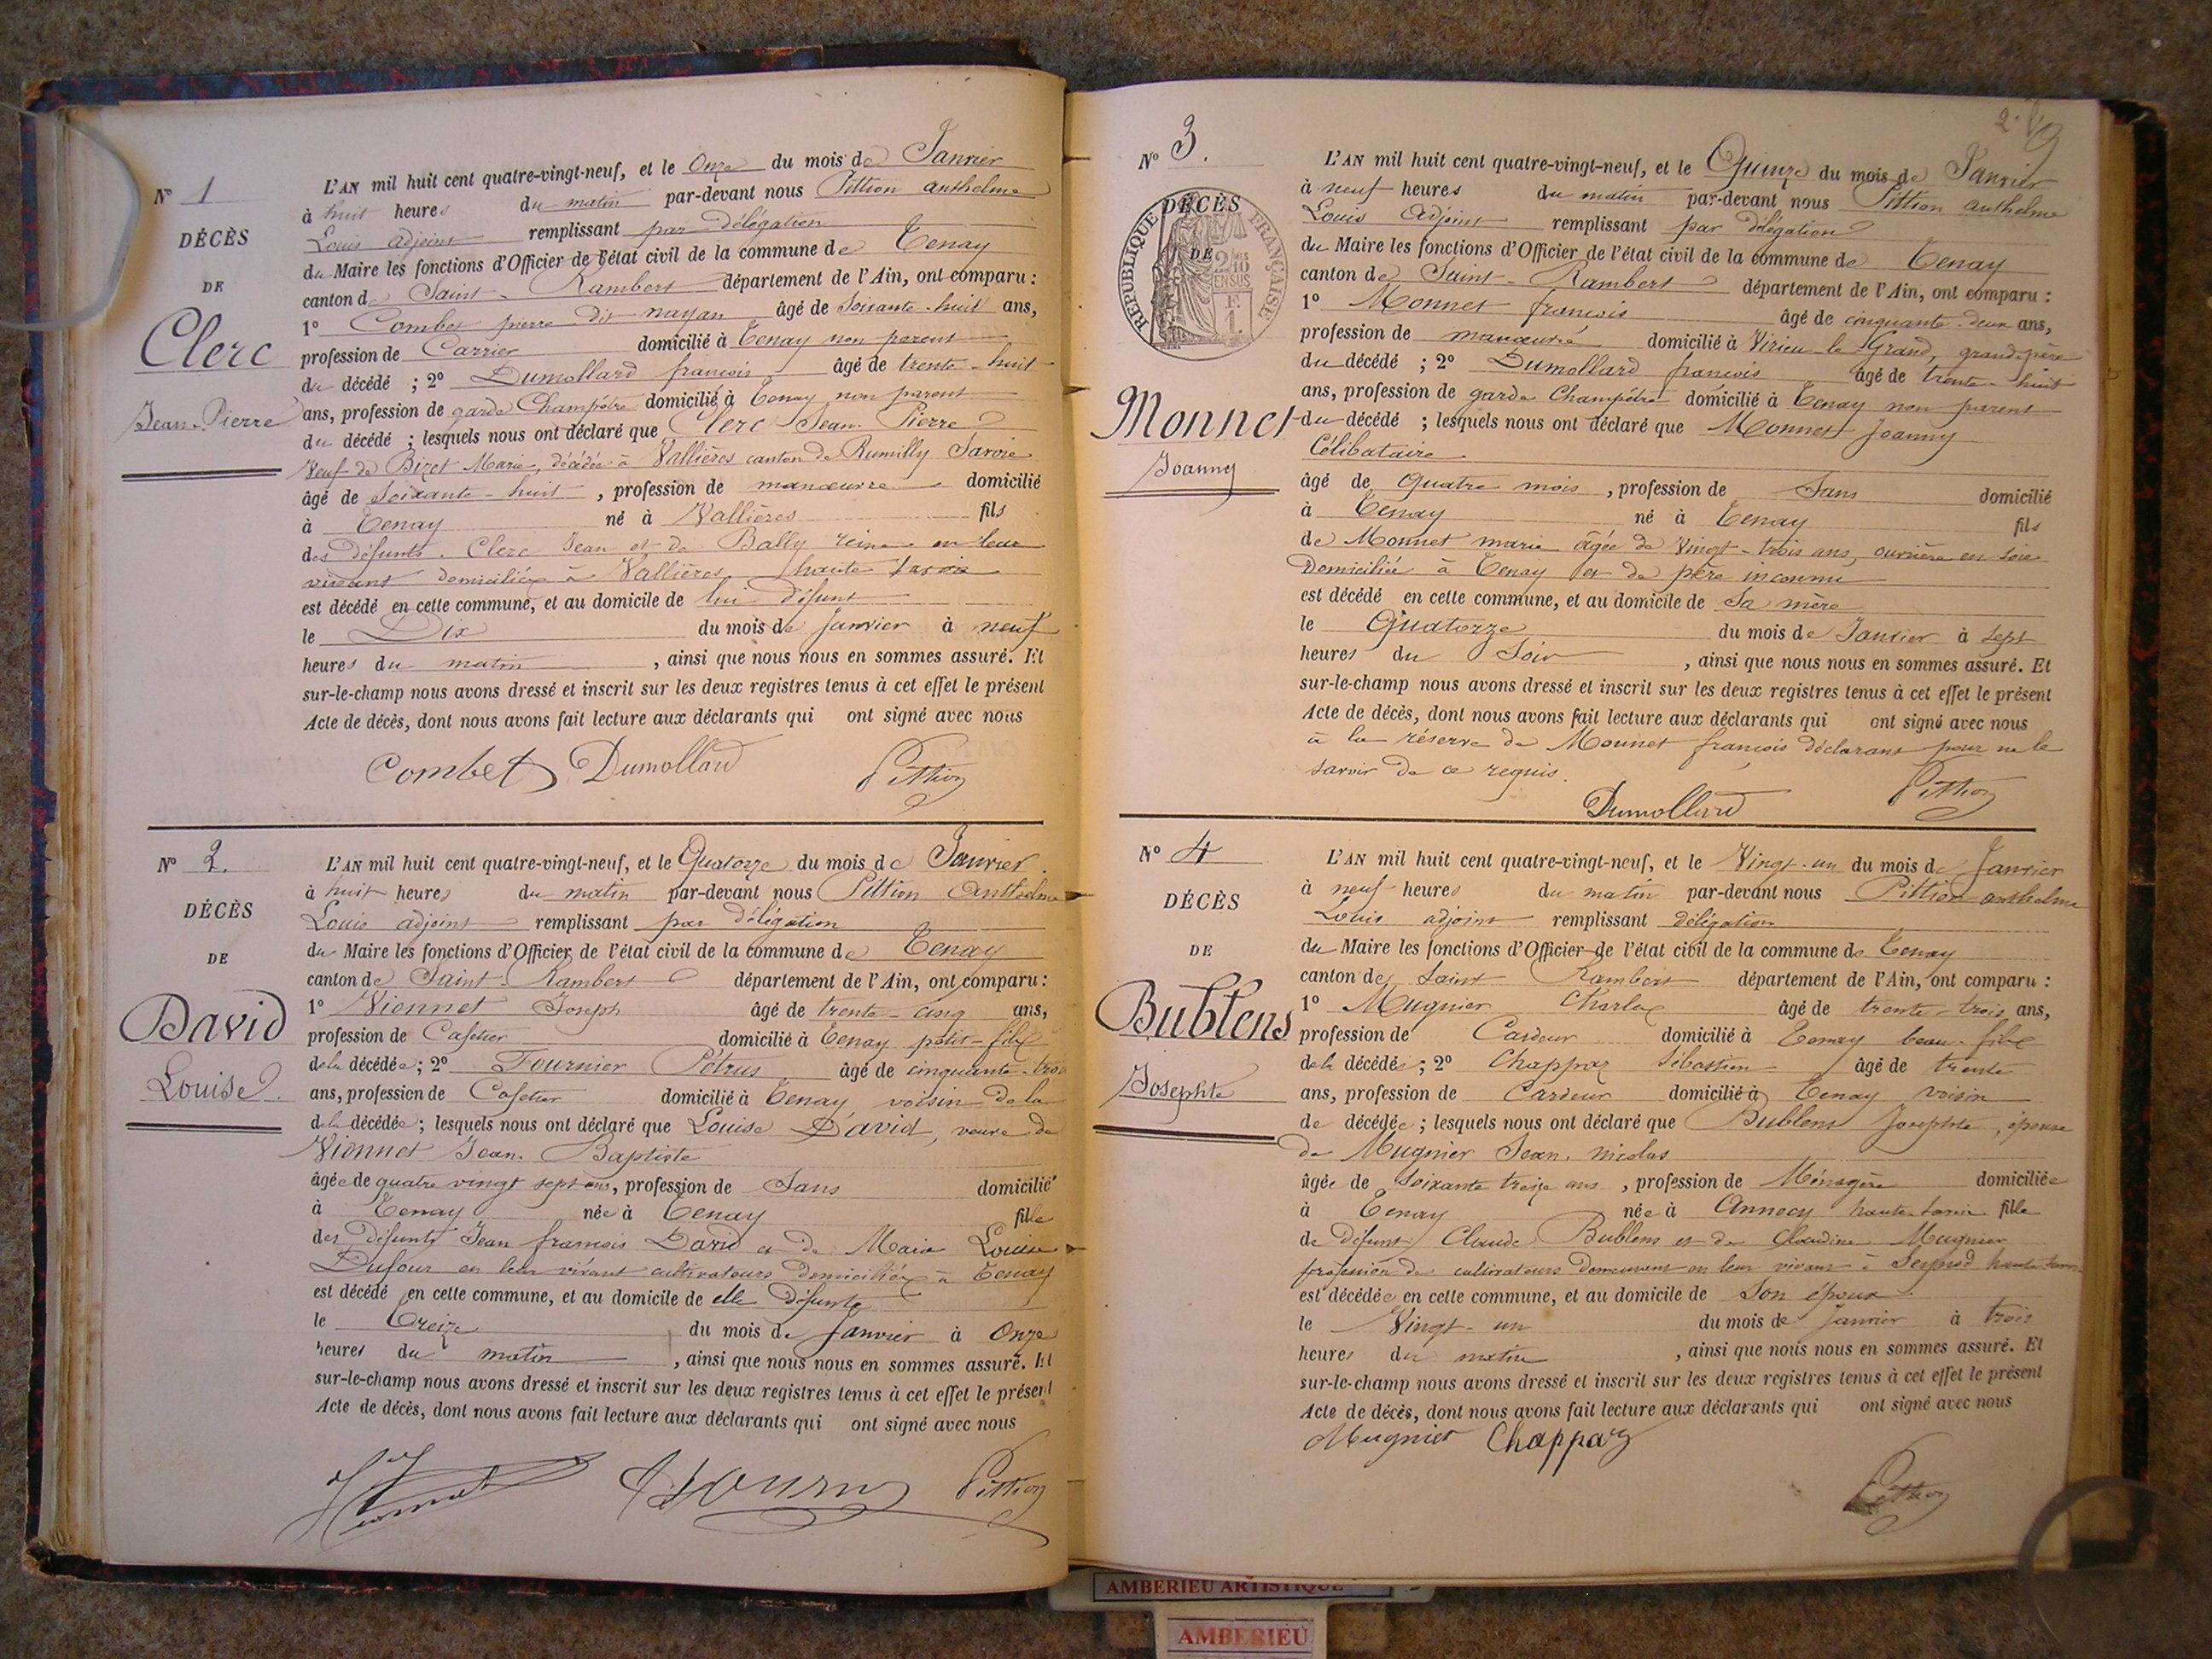 N° 1
DÉCÈS
DE
Clerc
Jean-Pierre
L'AN mil huit cent quatre-vingt-neuf, et le Onze du mois de Janvier
à huit heures du matin par-devant nous Pittion anthelme
Louis adjoint remplissant par délégation
du Maire les fonctions d'Officier de l'état civil de la commune de Tenay
canton de Saint-Rambert département de l'Ain, ont comparu :
1° Combet pierre dit nayan âgé de Soixante-huit ans,
profession de Carrier domicilié à Tenay non parent
du décédé ; 2° Dumollard francois âgé de trente-huit
ans, profession de garde Champêtre domicilié à Tenay non parent
du décédé ; lesquels nous ont déclaré que Clerc Jean-Pierre
Veuf de Bizet Marie, décédée à Vallières canton de Rumilly Savoie
âgé de Soixante-huit, profession de manœuvre domicilié
à Tenay né à Vallières fils
des défunts Clerc Jean et de Bally reine en leur
vivant domiciliés à Vallières haute Savoie
est décédé en cette commune, et au domicile de lui défunt
le Dix du mois de Janvier à neuf
heures du matin, ainsi que nous nous en sommes assuré. Et
sur-le-champ nous avons dressé et inscrit sur les deux registres tenus à cet effet le présent
Acte de décès, dont nous avons fait lecture aux déclarants qui ont signé avec nous
Combet Dumollard Pittion
N° 2.
DÉCÈS
DE
David
Louise
L'AN mil huit cent quatre-vingt-neuf, et le Quatorze du mois de Janvier.
à huit heures du matin par-devant nous Pittion Anthelme
Louis adjoint remplissant par délégation
du Maire les fonctions d'Officier de l'état civil de la commune de Tenay
canton de Saint-Rambert département de l'Ain, ont comparu :
1° Viennet Joseph âgé de trente-cinq ans,
profession de Cafetier domicilié à Tenay petit-fils
de la décédée ; 2° Fournier Pétrus âgé de cinquante-trois
ans, profession de Cafetier domicilié à Tenay, voisin de la
de la décédée ; lesquels nous ont déclaré que Louise David, veuve de
Viennet Jean-Baptiste
âgée de quatre vingt sept ans, profession de Sans domicilié
à Tenay née à Tenay fille
des défunts Jean francois David et de Marie Louise
Dufour en leur vivant cultivateurs domiciliés à Tenay
est décédé en cette commune, et au domicile de elle défunte
le Treize du mois de Janvier à Onze
heures du matin, ainsi que nous nous en sommes assuré. Et
sur-le-champ nous avons dressé et inscrit sur les deux registres tenus à cet effet le présent
Acte de décès, dont nous avons fait lecture aux déclarants qui ont signé avec nous
Pittion
N° 3.
RÉPUBLIQUE FRANÇAISE
DÉCÈS
DE
2/10 EN SUS
Monnet
Joanny
L'AN mil huit cent quatre-vingt-neuf, et le Quinze du mois de Janvier
à neuf heures du matin par-devant nous Pittion anthelme
Louis Adjoint remplissant par délégation
du Maire les fonctions d'Officier de l'état civil de la commune de Tenay
canton de Saint-Rambert département de l'Ain, ont comparu :
1° Monnet francois âgé de cinquante-deux ans,
profession de manœuvre domicilié à Virieu-le-Grand, grand-père
du décédé ; 2° Dumollard francois âgé de trente-huit
ans, profession de garde Champêtre domicilié à Tenay non parent
du décédé ; lesquels nous ont déclaré que Monnet Joanny
Célibataire
âgé de quatre mois, profession de Sans domicilié
à Tenay né à Tenay fils
de Monnet marie âgée de Vingt-trois ans, ouvrière en soie
Domiciliée à Tenay et de père inconnu
est décédé en cette commune, et au domicile de Sa mère
le Quatorze du mois de Janvier à sept
heures du Soir, ainsi que nous nous en sommes assuré. Et
sur-le-champ nous avons dressé et inscrit sur les deux registres tenus à cet effet le présent
Acte de décès, dont nous avons fait lecture aux déclarants qui ont signé avec nous
à la réserve de Monnet francois déclarant pour ne le
savoir de ce requis.
Dumollard Pittion
N° 4
DÉCÈS
DE
Bublens
Josephte
L'AN mil huit cent quatre-vingt-neuf, et le Vingt-un du mois de Janvier
à neuf heures du matin par-devant nous Pittion anthelme
Louis adjoint remplissant délégation
du Maire les fonctions d'Officier de l'état civil de la commune de Tenay
canton de Saint Rambert département de l'Ain, ont comparu :
1° Mugnier Charles âgé de trente-trois ans,
profession de Cardeur domicilié à Tenay beau-fils
de la décédée ; 2° Chappaz Sébastien âgé de trente
ans, profession de Cardeur domicilié à Tenay voisin
de décédée ; lesquels nous ont déclaré que Bublens Josephte, épouse
de Mugnier Jean-nicolas
âgée de soixante treize ans, profession de Ménagère domiciliée
à Tenay née à Annecy haute-savoie fille
de défunt Claude Bublens et de Claudine Mugnier
profession de cultivateurs demeurant en leur vivant à haute
est décédée en cette commune, et au domicile de Son époux
le Vingt-un du mois de Janvier à trois
heures du matin, ainsi que nous nous en sommes assuré. Et
sur-le-champ nous avons dressé et inscrit sur les deux registres tenus à cet effet le présent
Acte de décès, dont nous avons fait lecture aux déclarants qui ont signé avec nous
Mugnier Chappaz
Pittion
AMBERIEU ARTISTIQUE
AMBERIEU